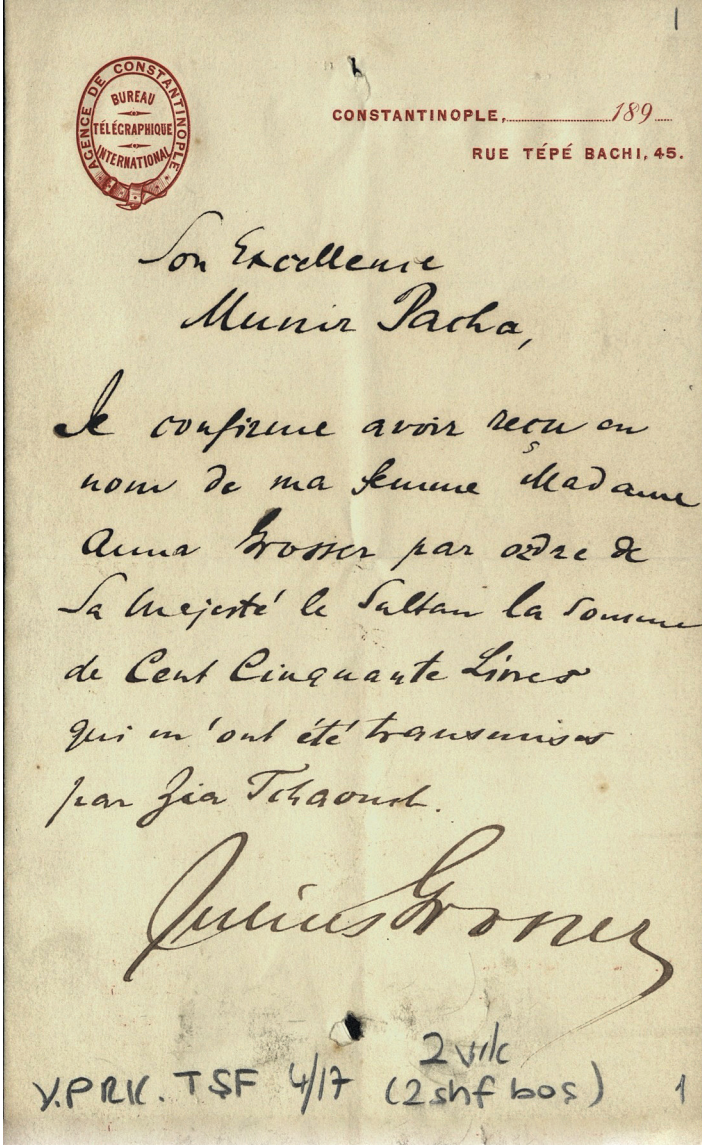 1
AGENCE DE CONSTANTINOPLE
BUREAU
TÉLÉGRAPHIQUE
INTERNATIONAL
CONSTANTINOPLE, 189
RUE TÉPÉ BACHI, 45.
Son Excellence
Munir Pacha,
Je confirme avoir reçu au
nom de ma femme Madame
Anna Grosser par ordre de
Sa Majesté le Sultan la somme
de Cent Cinquante Livres
qui m'ont été transmises
par Zia Tchaouch.
Julius Grosser
2 vrk
Y.PRK.TŞF 4/17 (2 shf boş) 1